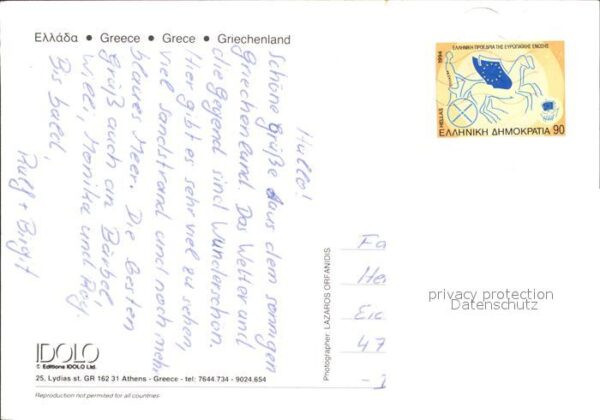 Ελλάδα • Greece • Grece • Griechenland
Hallo!
Schöne Grüße aus dem sonnigen
Griechenland. Das Wetter und
die Gegend sind Wunderschön.
Hier gibt es sehr viel zu sehen,
viel Sandstrand und noch mehr
blaues Meer. Die besten
Grüß auch an Bärbel,
Willi, Monika und Roy.
Bis bald,
Ralf + Birgit
1994
ΕΛΛΗΝΙΚΗ ΠΡΟΕΔΡΙΑ ΤΗΣ ΕΥΡΩΠΑΪΚΗΣ ΕΝΩΣΗΣ
HELLAS
ΕΛΛΗΝΙΚΗ ΔΗΜΟΚΡΑΤΙΑ 90
Photographer: LAZAROS ORFANIDIS
Fa
Her
Eic
47
privacy protection
Datenschutz
IDOLO
© Editions IDOLO Ltd.
25, Lydias st. GR 162 31 Athens - Greece - tel: 7644.734 - 9024.654
Reproduction not permited for all countries